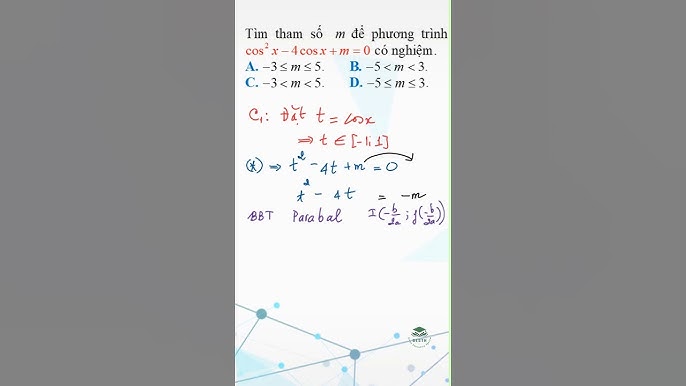 Tìm tham số m để phương trình
cos² x − 4 cos x + m = 0 có nghiệm.
A. −3 ≤ m ≤ 5. B. −5 < m < 3.
C. −3 < m < 5. D. −5 ≤ m ≤ 3.
C₁: Đặt t = cosx
⇒ t ∈ [-1;1]
(*) ⇒ t² − 4t + m = 0
t² − 4t = −m
BBT Parabal I(−b/2a ; f(−b/2a))